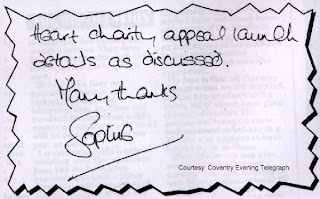 Heart charity appeal launch
details as discussed.
Many thanks
Sophie
Courtesy: Coventry Evening Telegraph